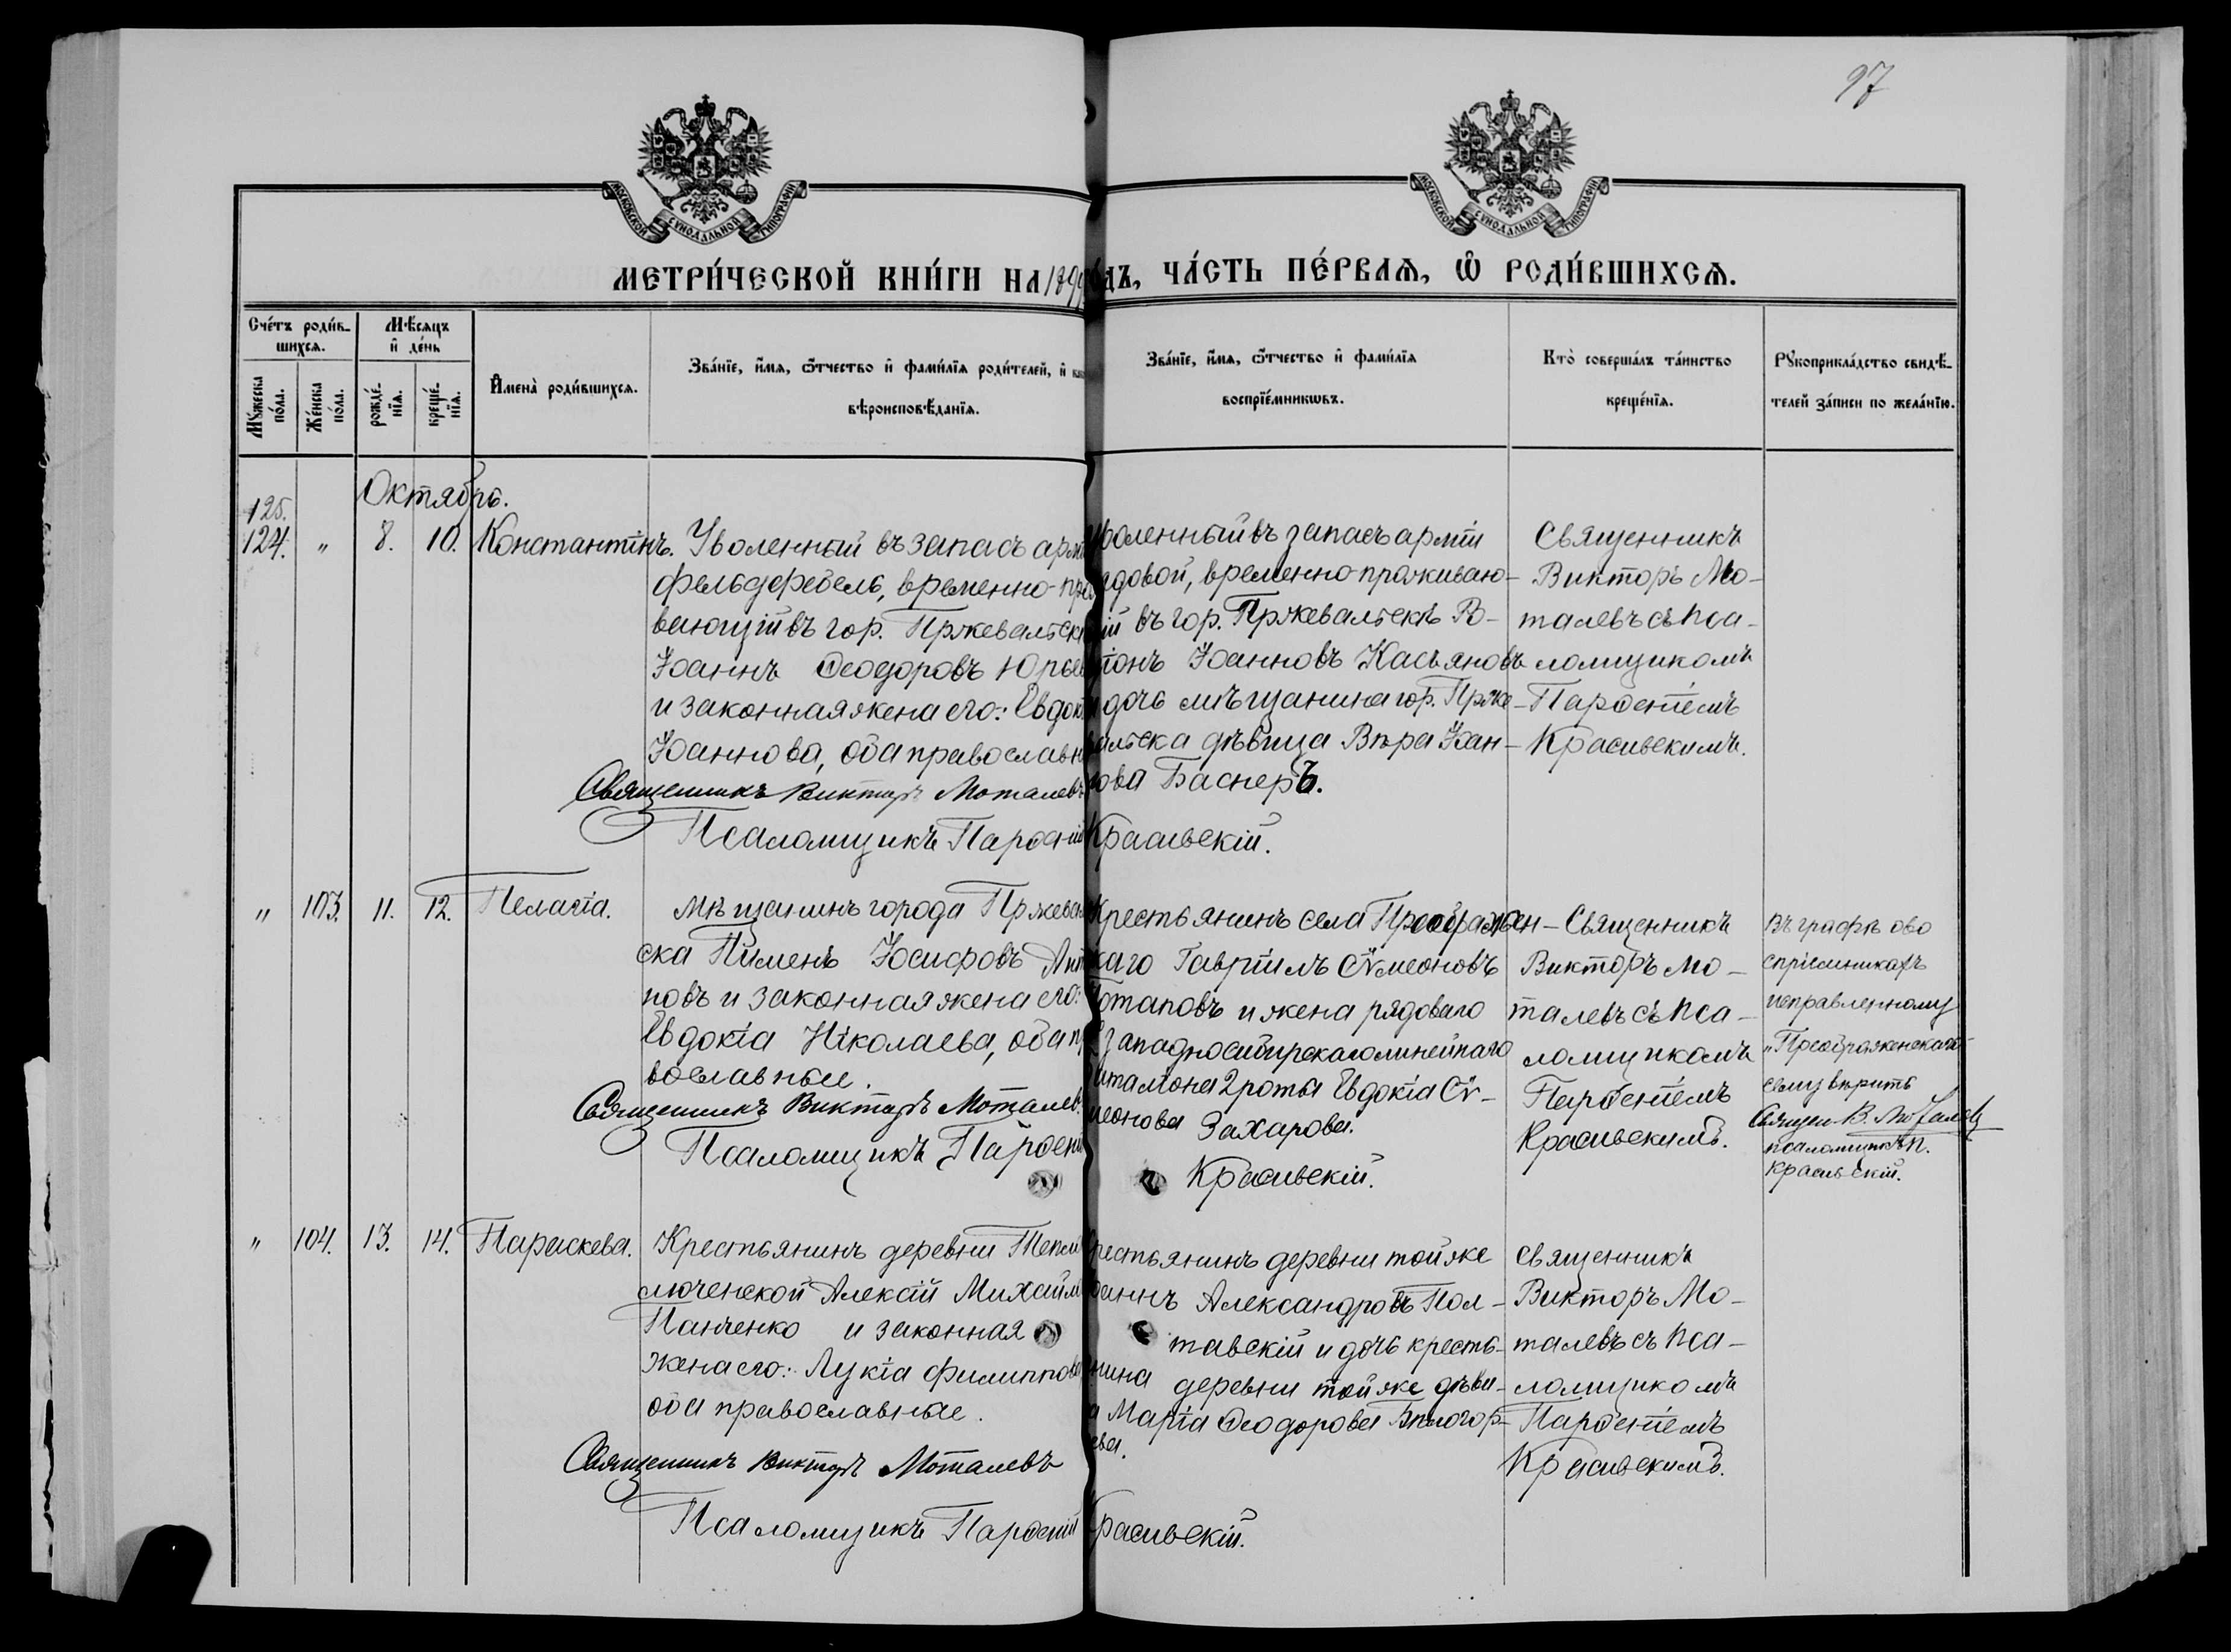 97
МОСКОВСКОЙ СѴНОДАЛЬНОЙ ТИПОГРАФІИ
МОСКОВСКОЙ СѴНОДАЛЬНОЙ ТИПОГРАФІИ
МЕТРИ́ЧЕСКОЙ КНИ́ГИ НА 1899 ГОДЪ, ЧА́СТЬ ПЕ́РВАѦ, Ѡ҆ РОДИ́ВШИХСѦ.
Сче́тъ роди́в-
шихсѧ.
Мѣ́сѧцъ
и҆ де́нь
Мꙋ́жеска
по́ла.
Же́нска
по́ла.
рожде́-
нїѧ.
креще́-
нїѧ.
И҆мена̀ роди́вшихсѧ.
Зва́нїе, и҆́мѧ, ѻ҆́тчество и҆ фами́лїѧ роди́телей, и҆
вѣроисповѣ́данїѧ.
Зва́нїе, и҆́мѧ, ѻ҆́тчество и҆ фами́лїѧ
воспрїе́мникѡвъ.
Кто̀ соверша́лъ та́инство
креще́нїѧ.
Рꙋкоприкла́дство свидѣ́-
телей за́писи по жела́нїю.
Октябрь.
125.
124. " 8. 10. Константінъ.
Уволенный въ запасъ арм
фельдфебель, временно-про
вающій въ гор. Пржевальск
Іоаннъ Ѳеодоровъ Юрьев
и законная жена его: Евдок
Іоаннова, оба православн
Священникъ Викторъ Моталевъ
Псаломщикъ Парѳеній Красивскій.
Уволенный въ запасъ арміи
рядовой, временно проживаю-
щій въ гор. Пржевальскѣ Ро-
діонъ Іоанновъ Касьяновъ
и дочь мѣщанина гор. Прже-
вальска дѣвица Вѣра Іоан-
нова Баснеръ.
Священникъ
Викторъ Мо-
талевъ съ пса-
ломщикомъ
Парѳеніемъ
Красивскимъ.
" 103. 11. 12. Пелагія.
Мѣщанинъ города Пржевал
ска Пименъ Іосифовъ Ант
повъ и законная жена его:
Евдокія Ніколаева, оба пр
вославные.
Священникъ Викторъ Моталев
Псаломщикъ Парѳені Красивскій.
Крестьянинъ села Преображен-
скаго Гавріилъ Сѵмеоновъ
Потаповъ и жена рядоваго
Западносибирскаго линейнаго
баталіона 2 роты Евдокія Сѵ-
меонова Захарова.
Священникъ
Викторъ Мо-
талевъ съ пса-
ломщикомъ
Парѳеніемъ
Красивскимъ.
Въ графѣ ово
спріемникахъ
исправленному
"Преображенскаго"
сему вѣрить
Священ. В. Моталевъ
псаломщикъ П.
Красивскій.
" 104. 13. 14. Параскева.
Крестьянинъ деревни Тепло
люченской Алексій Михаил
Панченко и законная
жена его: Лукія Филиппова
оба православные.
Священникъ Викторъ Моталевъ
Псаломщикъ Парѳеній Красивскій.
Крестьянинъ деревни той же
Іоаннъ Александровъ Пол-
тавскій и дочь кресть-
янина деревни той же дѣви-
ца Марія Ѳеодорова Бѣлогор-
ева.
Священникъ
Викторъ Мо-
талевъ съ пса-
ломщикомъ
Парѳеніемъ
Красивскимъ.